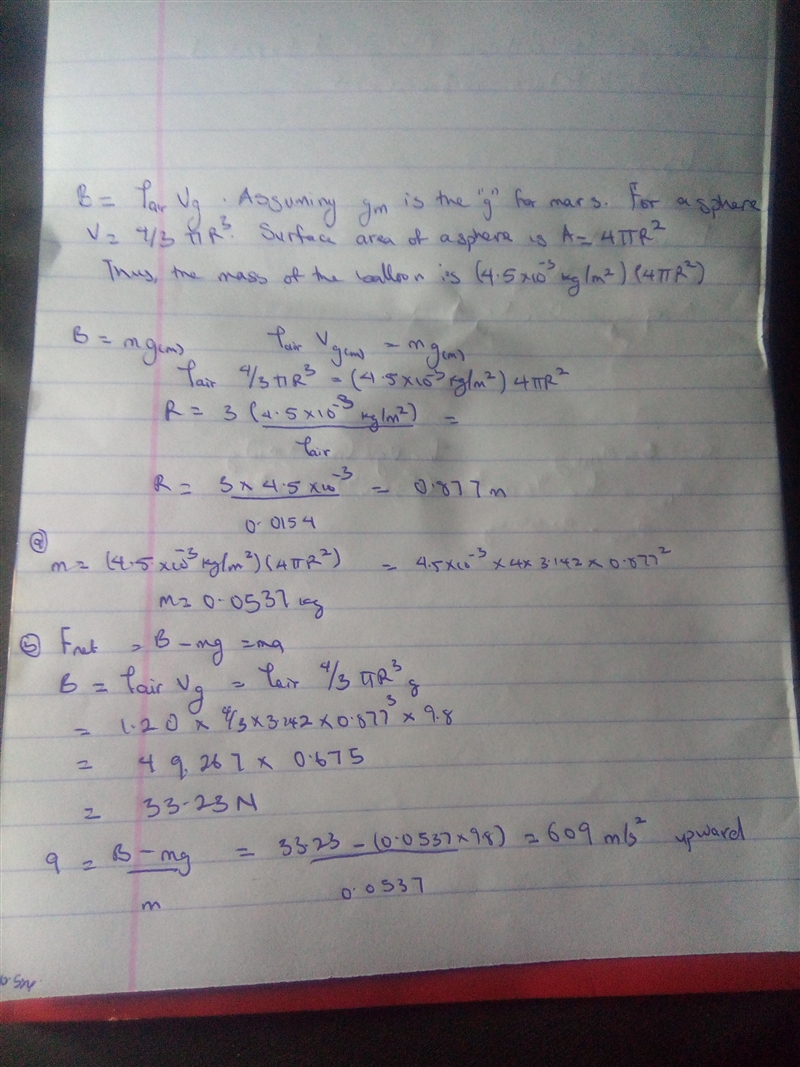 B = ρair Vg. Assuming gm is the "g" for mars. For a sphere
V = 4/3 πR³. Surface area of a sphere is A = 4πR²
Thus, the mass of the balloon is (4.5×10⁻³ kg/m²)(4πR²)
B = mg(m) ρair Vg(m) = mg(m)
ρair 4/3 πR³ = (4.5×10⁻³ kg/m²) 4πR²
R = 3 (4.5×10⁻³ kg/m²) =
ρair
R = 3 × 4.5 ×10⁻³ = 0.877 m
0.0154
(a)
m = (4.5×10⁻³ kg/m²)(4πR²) = 4.5×10⁻³ × 4 × 3.142 × 0.877²
m = 0.0537 kg
(b) Fnet = B - mg = ma
B = ρair Vg = ρair 4/3 πR³ g
= 1.20 × 4/3 × 3.142 × 0.877³ × 9.8
= 49.267 × 0.675
= 33.23 N
a = B - mg = 33.23 - (0.0537 × 9.8) = 609 m/s² upward
m 0.0537